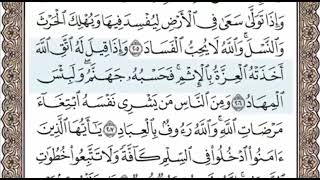 وَإِذَا تَوَلَّىٰ سَعَىٰ فِي ٱلۡأَرۡضِ لِيُفۡسِدَ فِيهَا وَيُهۡلِكَ ٱلۡحَرۡثَ
وَٱلنَّسۡلَۚ وَٱللَّهُ لَا يُحِبُّ ٱلۡفَسَادَ ٢٠٥ وَإِذَا قِيلَ لَهُ ٱتَّقِ ٱللَّهَ
أَخَذَتۡهُ ٱلۡعِزَّةُ بِٱلۡإِثۡمِۚ فَحَسۡبُهُۥ جَهَنَّمُۖ وَلَبِئۡسَ
ٱلۡمِهَادُ ٢٠٦ وَمِنَ ٱلنَّاسِ مَن يَشۡرِي نَفۡسَهُ ٱبۡتِغَآءَ
مَرۡضَاتِ ٱللَّهِۚ وَٱللَّهُ رَءُوفُۢ بِٱلۡعِبَادِ ٢٠٧ يَٰٓأَيُّهَا ٱلَّذِينَ
ءَامَنُواْ ٱدۡخُلُواْ فِي ٱلسِّلۡمِ كَآفَّةٗ وَلَا تَتَّبِعُواْ خُطُوَٰتِ